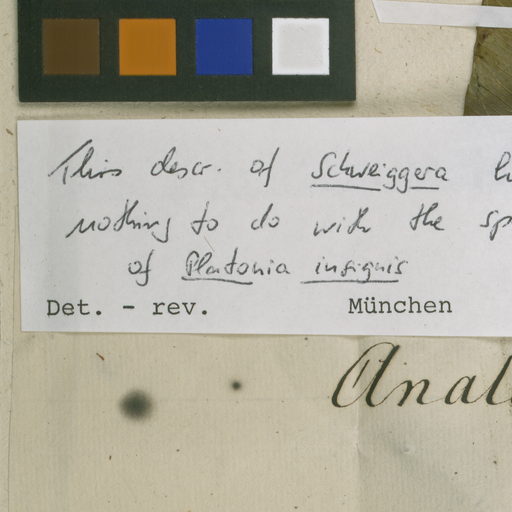 This descr. of Schweiggera h
nothing to do with the sp
of Platonia insignis
Det. - rev. München
Anal